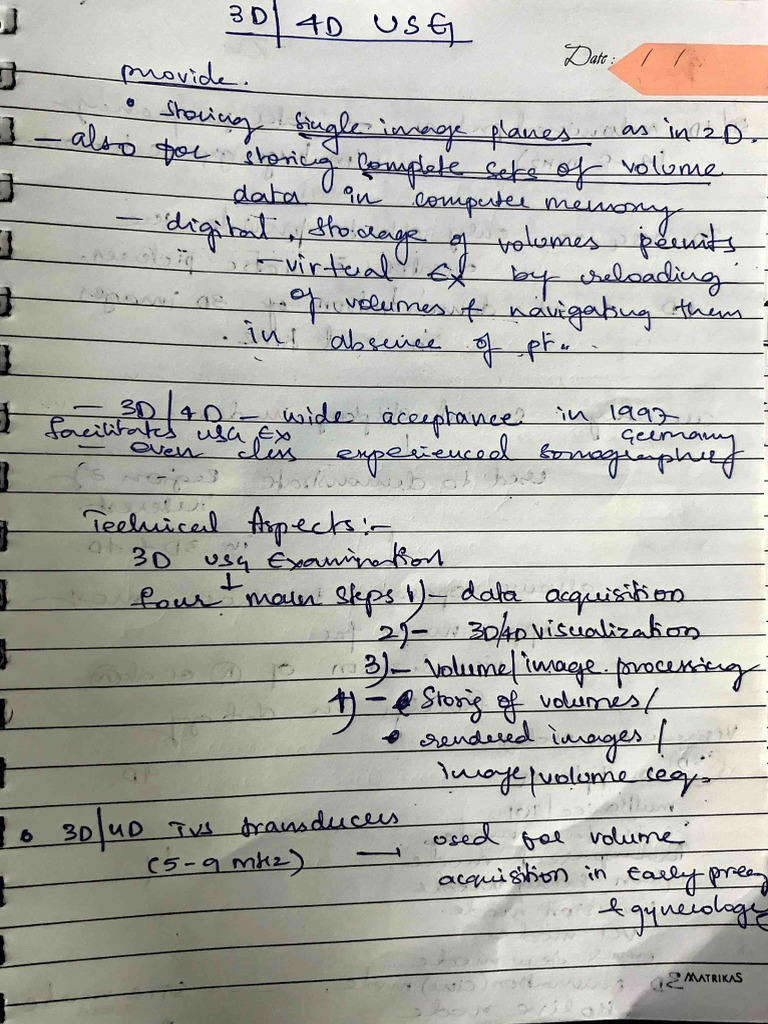 3D/4D USG
Date: / /
provide.
• Storing single image planes as in 2D.
– also for storing complete sets of volume
data in computer memory
– digital storage of volumes permits
– virtual Ex by reloading
of volumes & navigating them
in absence of pt.
– 3D/4D – wide acceptance in 1997
Germany
facilitates USG Ex
– even less experienced sonographers
Technical Aspects:-
3D USG Examination
four main steps 1)– data acquisition
2)– 3D/4D visualization
3)– Volume/image processing
4)– • Storig of volumes/
• rendered images/
image/volume seq.
• 3D/4D TVS transducers
(5-9 MHz) → used for volume
acquisition in early preg
& gynecology
MATRIKAS